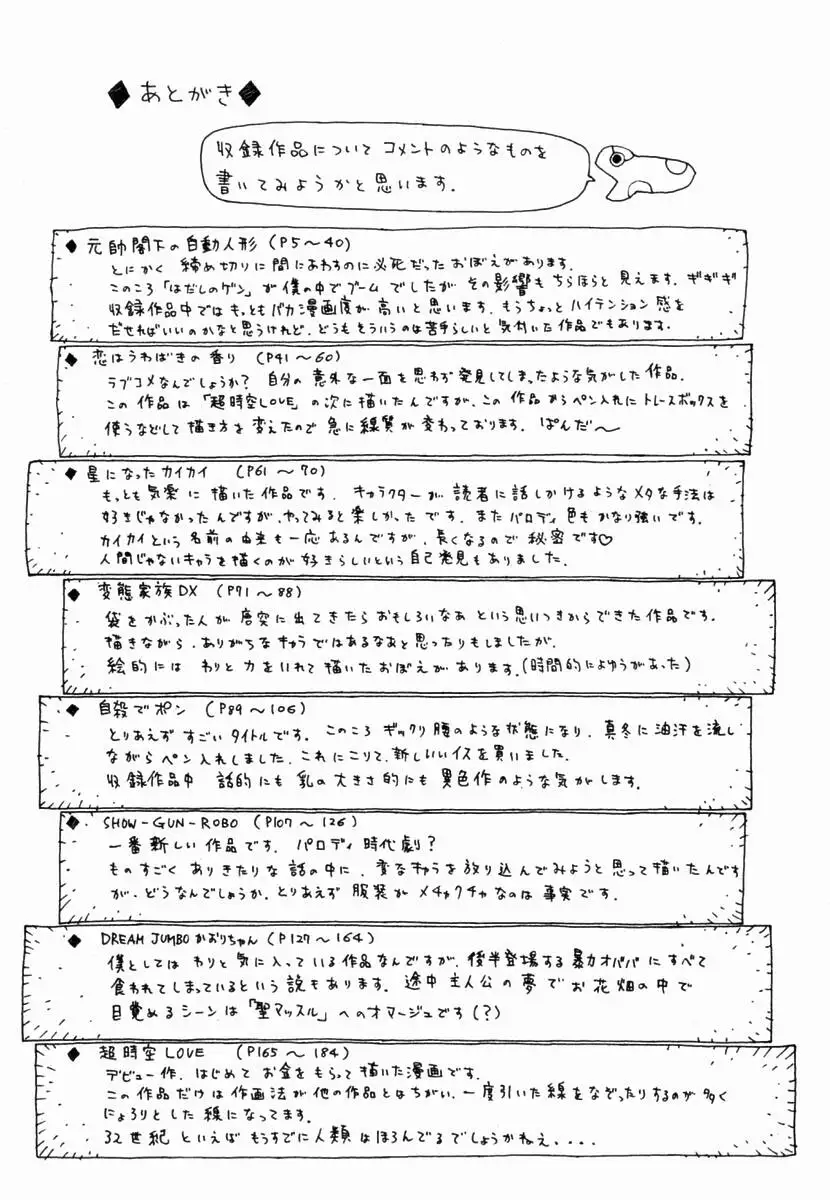 ◆あとがき◆
収録作品について コメントのようなものを
書いてみようかと思います.
◆ 元帥閣下の自動人形 (P5～40)
とにかく 締め切りに間にあわすのに必死だった おぼえがあります.
このころ 「はだしのゲン」が僕の中でブームでしたが その影響も ちらほらと 見えます. ギギギ
収録作品中では もっともバカ漫画度が 高いと思います. もうちょっと ハイテンション 感を
だせればいいのかなと思うけれど. どうもそういうのは苦手らしいと 気付いた作品でもあります.
◆ 恋はうわばきの香り (P41～60)
ラブコメなんでしょうか? 自分の意外な一面を思わず発見してしまったような気がした作品.
この作品は 「超時空LOVE」の次に描いたんですが, この作品からペン入れにトレースボックスを
使うなどして描き方を変えたので 急に線質が変わっております. ぱんだ～
◆ 星になったカイカイ (P61～70)
もっとも気楽に描いた作品です. キャラクターが 読者に話しかけるようなメタな手法は
好きじゃなかったんですが, やってみると楽しかったです. またパロディ色もかなり強いです.
カイカイという名前の由来も一応あるんですが, 長くなるので 秘密です♡
人間じゃないキャラを描くのが好きらしいという自己発見もありました.
◆ 変態家族DX (P71～88)
袋をかぶった人が 唐突に出てきたら おもしろいなあ という思いつきからできた作品です.
描きながら, ありがちなキャラではあるなあと思ったりもしましたが,
絵的には わりと力をいれて描いたおぼえがあります. (時間的によゆうがあった)
◆ 自殺でポン (P89～106)
とりあえず すごいタイトルです. このころ ギックリ腰のような状態になり, 真冬に油汗を流し
ながらペン入れしました. これにこりて, 新しいイスを買いました.
収録作品中 話的にも 乳の大きさ的にも 異色作のような気がします.
◆ SHOW-GUN-ROBO (P107～126)
一番新しい作品です. パロディ時代劇?
ものすごく ありきたりな話の中に, 変なキャラを放り込んでみようと思って描いたんです
が, どうなんでしょうか. とりあえず 服装がメチャクチャなのは事実です.
◆ DREAM JUMBO かおりちゃん (P127～164)
僕としては わりと気に入っている作品なんですが, 後半登場する暴力オパパにすべて
食われてしまっているという説もあります. 途中主人公の夢でお花畑の中で
目覚めるシーンは「聖マッスル」へのオマージュです(?)
◆ 超時空LOVE (P165～184)
デビュー作. はじめてお金をもらって描いた漫画です.
この作品だけは作画法が他の作品とはちがい, 一度引いた線をなぞったりするのが多く
にょろりとした線になってます.
32世紀といえば もうすでに人類はほろんでるでしょうかねぇ....